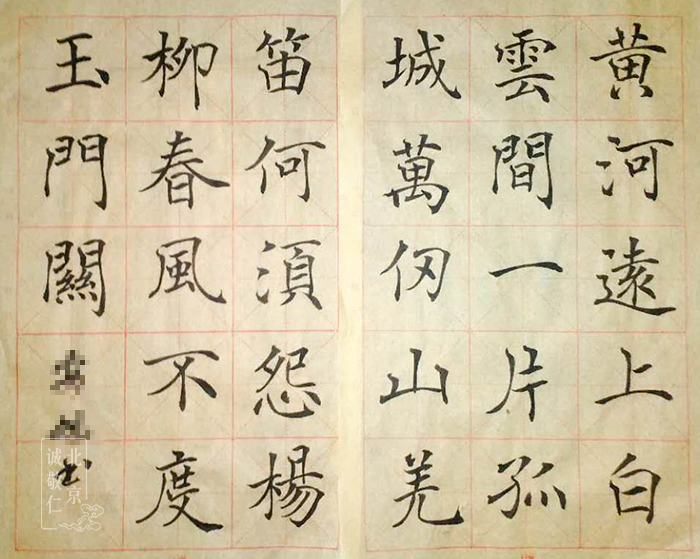 黄河遠上白
雲間一片孤
城萬仞山羌
笛何須怨楊
柳春風不度
玉門關
书
北京
诚敬仁